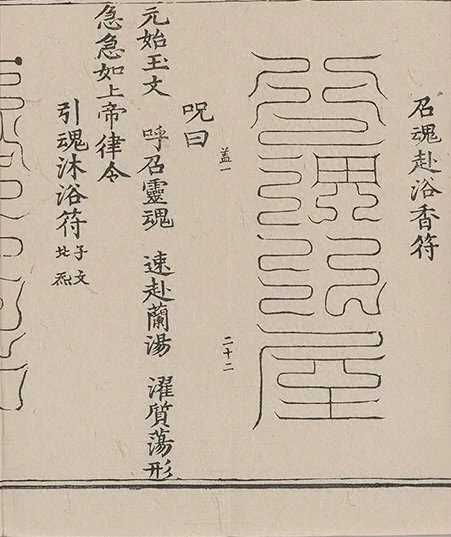 召魂赴浴香符
蓋一
二十二
呪曰
元始玉文　呼召靈魂　速赴蘭湯　濯質蕩形
急急如上帝律令
引魂沐浴符
子文
北炁